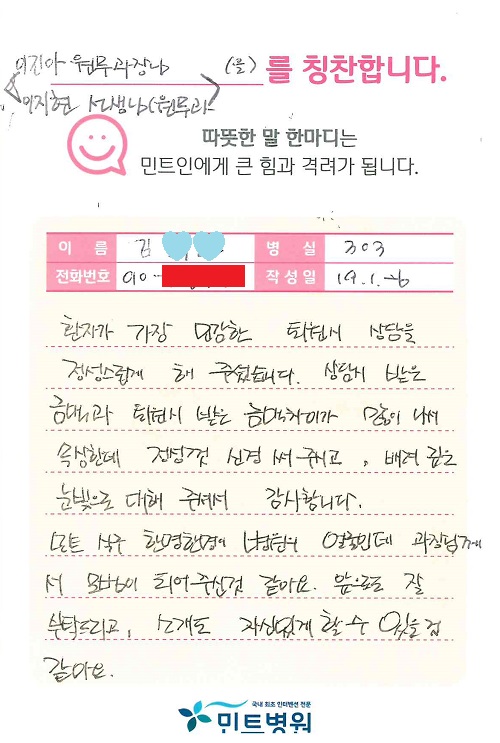 이진아 원무과장님 (을) 를 칭찬합니다.
이지현 선생님(원무과
따뜻한 말 한마디는
민트인에게 큰 힘과 격려가 됩니다.
이 름 김 병 실 303
전화번호 010- 작성일 19.1.26
환자가 가장 민감한 퇴원시 상담을
정성스럽게 해 주셨습니다. 상담시 받은
금액과 퇴원시 받은 금액차이가 많이 나서
속상한데 정성껏 신경 써 주시고, 배려 깊은
눈빛으로 대해 주셔서 감사합니다.
모든 식구 한명한명이 병원의 얼굴인데 과장님께
서 모범이 되어주신것 같아요. 앞으로도 잘
부탁드리고, 소개도 자신있게 할 수 있을 것
같아요.
국내 최초 인터벤션 전문
민트병원